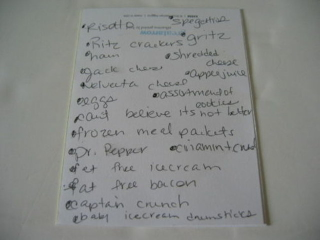 Risotto spagettios
Ritz crackers gritz
ham shredded cheese
jack cheese apple juice
Velveeta cheese
eggs assortment of cookies
cant believe its not butter
frozen meal packets
Dr. Pepper
fat free icecream
fat free bacon
captain crunch
baby icecream drumsticks